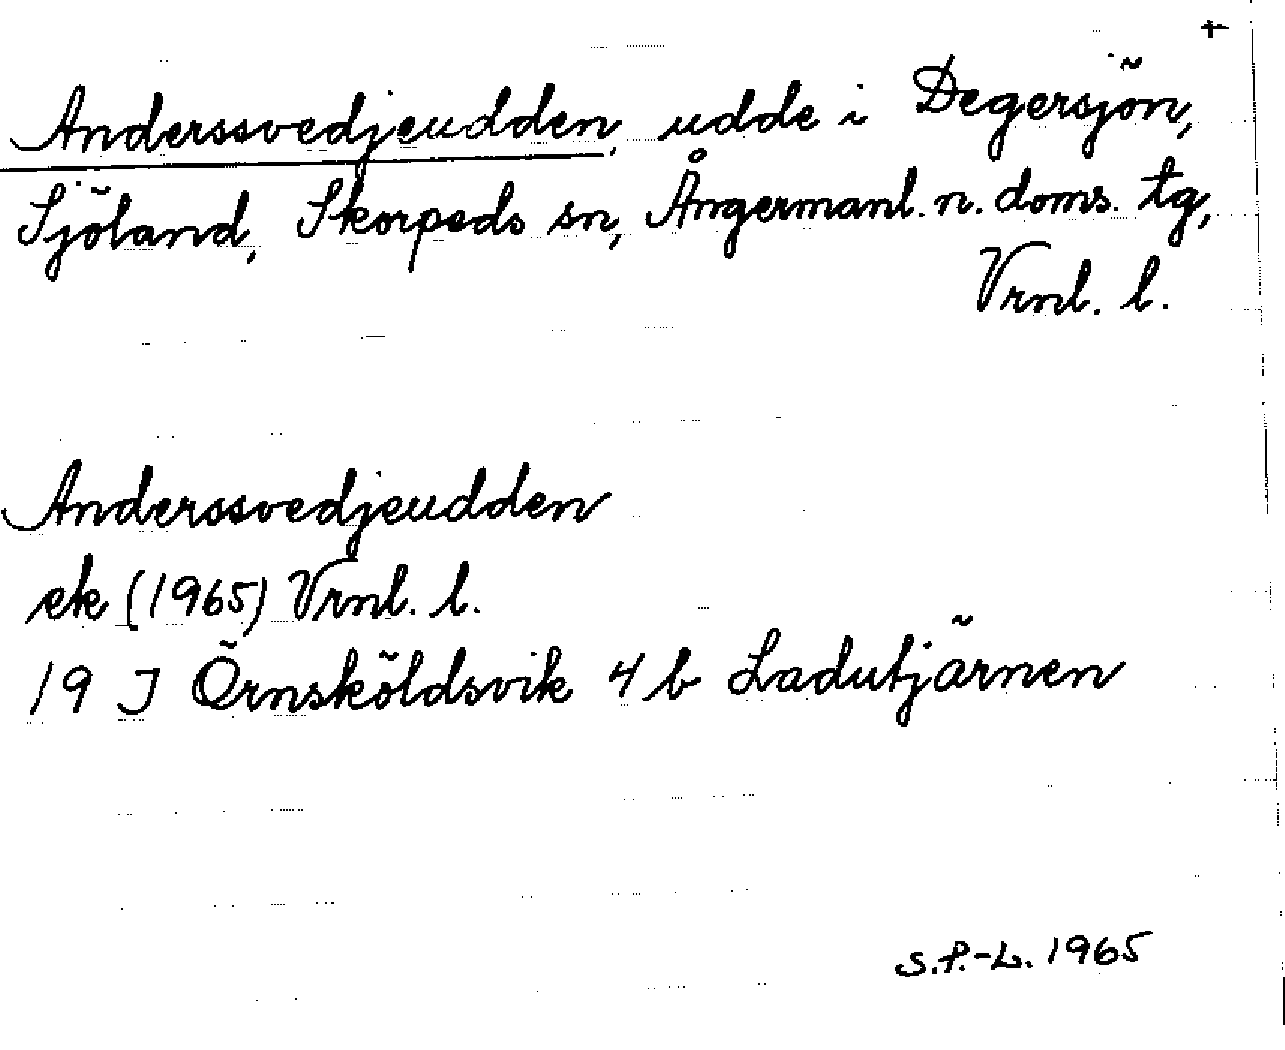 +
Anderssvedjeudden, udde i Degersjön,
Sjöland, Skorpeds sn, Ångermanl. n. doms. tg,
Vrnl. l.
Anderssvedjeudden
ek (1965) Vrnl. l.
19 J Örnsköldsvik 4 b Ladutjärnen
S.P.-L. 1965